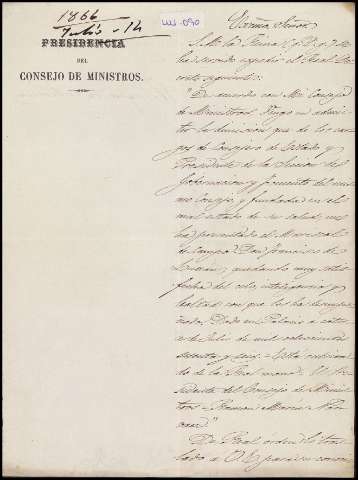 1866
Julio - 14
LUJ-090
PRESIDENCIA
DEL
CONSEJO DE MINISTROS.
Excmo. Señor
S. M. la Reina (q. D. g.) se ha
servido expedir el Real De-
creto siguiente:
"De acuerdo con Mi Consejo
de Ministros Vengo en admi-
tir la dimision que de los car-
gos de Consejero de Estado y
Presidente de la Seccion de
Gobernacion y Fomento del mis-
mo Consejo, y fundada en el
mal estado de su salud me
ha presentado el Mariscal
de Campo Don Francisco de
Luxán, quedando muy satis-
fecha del celo, inteligencia y
lealtad con que los ha desempe-
ñado. Dado en Palacio a cator-
ce de Julio de mil ochocientos
sesenta y seis. Está rubrica-
do de la Real mano. El Pre-
sidente del Consejo de Minis-
tros - Ramon Maria Nar-
vaez."
De Real orden lo tras-
lado a V. E. para su conoci-